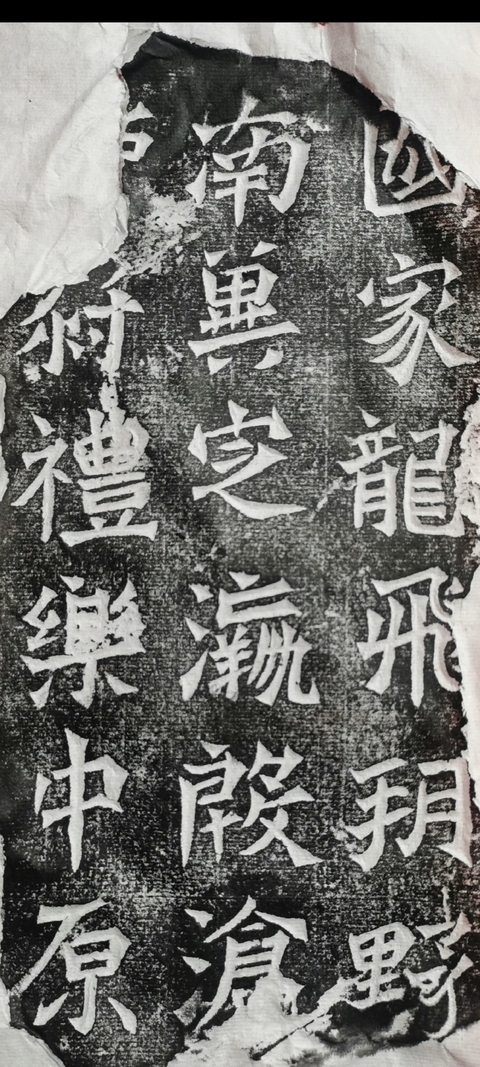 國家龍飛朔野
南冀定瀛殷滄
禮樂中原